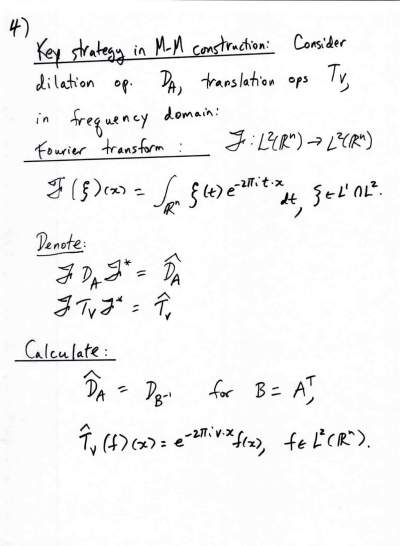 4)
Key strategy in M-M construction: Consider
dilation op. D_A, translation ops T_v,
in frequency domain:
Fourier transform : ℱ : L²(ℝⁿ) → L²(ℝⁿ)
ℱ(ξ)(x) = ∫_{ℝⁿ} ξ(t) e^{-2πi t·x} dt, ξ ∈ L¹ ∩ L².
Denote:
ℱ D_A ℱ* = D̂_A
ℱ T_v ℱ* = T̂_v
Calculate:
D̂_A = D_{B⁻¹} for B = Aᵀ,
T̂_v(f)(x) = e^{-2πi v·x} f(x), f ∈ L²(ℝⁿ).